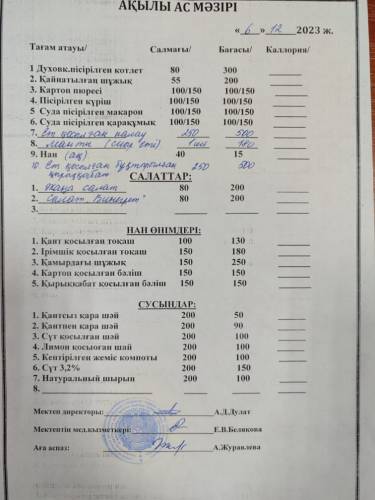 АҚЫЛЫ АС МӘЗІРІ
« 6 » 12 2023 ж.
Тағам атауы/ Салмағы/ Бағасы/ Каллория/
1 Духовк.пісірілген котлет 80 300
2. Қайнатылған шұжық 55 200
3. Картоп пюресі 100/150 100/150
4. Пісірілген күріш 100/150 100/150
5 Суда пісірілген макарон 100/150 100/150
6. Суда пісірілген қарақұмық 100/150 100/150
7. Ет қосылған палау 250 500
8. Манты (сиыр еті) 180
9. Нан (ақ) 40 15
10. Ет қосылған бұқтырылған 250 500
САЛАТТАР:
1. Жаңа салат 80 200
2. Салат "Винегрет" 80 200
3.
НАН ӨНІМДЕРІ:
1. Қант қосылған тоқаш 100 130
2. Ірімшік қосылған тоқаш 150 180
3. Қамырдағы шұжық 150 250
4. Картоп қосылған бәліш 150 150
5. Қырыққабат қосылған бәліш 150 150
СУСЫНДАР:
1. Қантсыз қара шай 200 50
2. Қантпен қара шай 200 90
3. Сүт қосылған шай 200 100
4. Лимон қосылған шай 200 100
5. Кептірілген жеміс компоты 200 100
6. Сүт 3,2% 200 150
7. Натуральный шырын 200 100
8.
Мектеп директоры: А.Д.Дулат
Мектептің мед.қызметкері: Е.В.Белякова
Аға аспаз: А.Журавлева